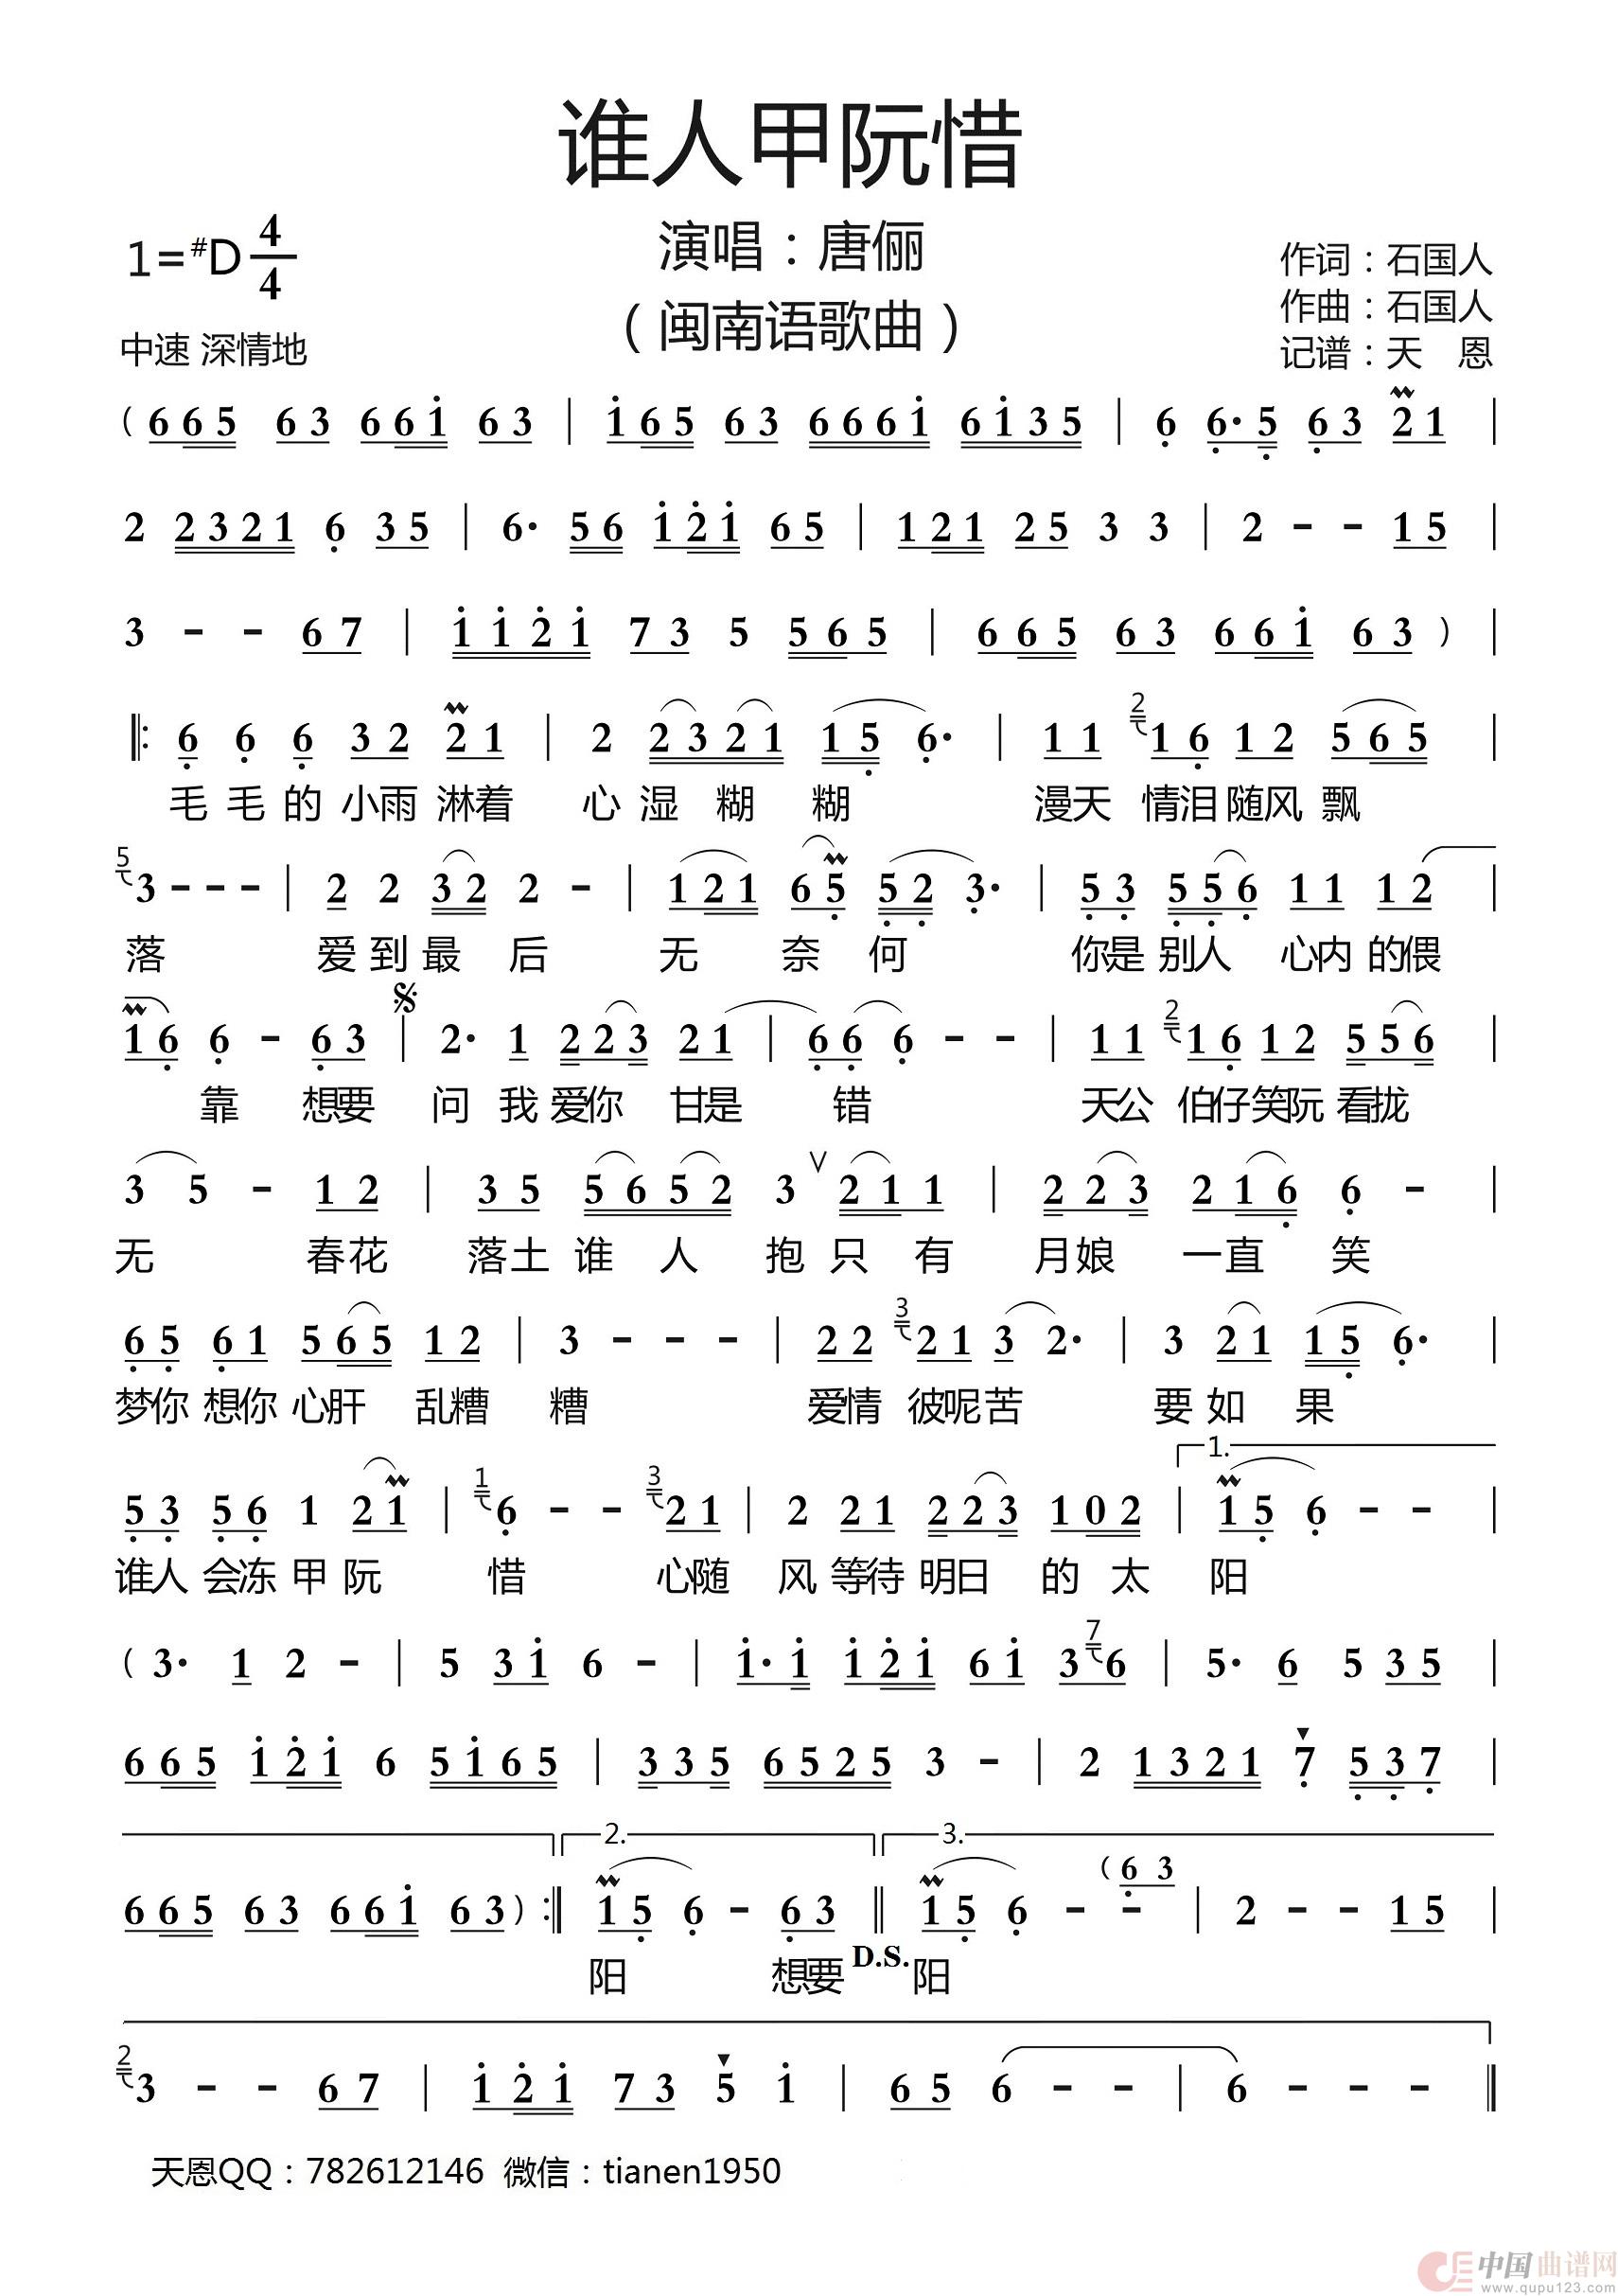 谁人甲阮惜
演唱：唐俪
（闽南语歌曲）
1=#D 4/4
中速 深情地
作词：石国人
作曲：石国人
记谱：天 恩
( 6 6 5 6 3 6 6 1 6 3 | 1 6 5 6 3 6 6 6 1 6 1 3 5 | 6 6· 5 6 3 2 1 |
2 2 3 2 1 6 3 5 | 6· 5 6 1 2 1 6 5 | 1 2 1 2 5 3 3 | 2 - - 1 5 |
3 - - 6 7 | 1 1 2 1 7 3 5 5 6 5 | 6 6 5 6 3 6 6 1 6 3 ) |
|: 6 6 6 3 2 2 1 | 2 2 3 2 1 1 5 6· | 1 1 2 1 6 1 2 5 6 5 |
毛 毛 的 小雨 淋着 心 湿 糊 糊 漫天 情泪 随风 飘
5 3 - - - | 2 2 3 2 2 - | 1 2 1 6 5 5 2 3· | 5 3 5 5 6 1 1 1 2 |
落 爱 到 最 后 无 奈 何 你是 别人 心内 的偎
1 6 6 - 6 3 | 2· 1 2 2 3 2 1 | 6 6 6 - - | 1 1 2 1 6 1 2 5 5 6 |
靠 想要 问 我 爱你 甘是 错 天公 伯仔 笑阮 看拢
3 5 - 1 2 | 3 5 5 6 5 2 3 V 2 1 1 | 2 2 3 2 1 6 6 - |
无 春花 落土 谁 人 抱 只 有 月娘 一直 笑
6 5 6 1 5 6 5 1 2 | 3 - - - | 2 2 3 2 1 3 2· | 3 2 1 1 5 6· |
梦你 想你 心肝 乱糟 糟 爱情 彼呢 苦 要 如 果
1.
5 3 5 6 1 2 1 | 1 6 - - 3 2 1 | 2 2 1 2 2 3 1 0 2 | 1 5 6 - - |
谁人 会冻 甲 阮 惜 心随 风 等待 明日 的 太 阳
( 3· 1 2 - | 5 3 1 6 - | 1· 1 1 2 1 6 1 3 7 6 | 5· 6 5 3 5 |
6 6 5 1 2 1 6 5 1 6 5 | 3 3 5 6 5 2 5 3 - | 2 1 3 2 1 7 5 3 7 |
2. 3.
6 6 5 6 3 6 6 1 6 3 ) :| 1 5 6 - 6 3 || 1 5 6 - - ( 6 3 | 2 - - 1 5 |
D.S.
阳 想要 阳
2 3 - - 6 7 | 1 2 1 7 3 5 1 | 6 5 6 - - | 6 - - - ||
天恩QQ：782612146 微信：tianen1950
中国曲谱网
www.qupu123.com